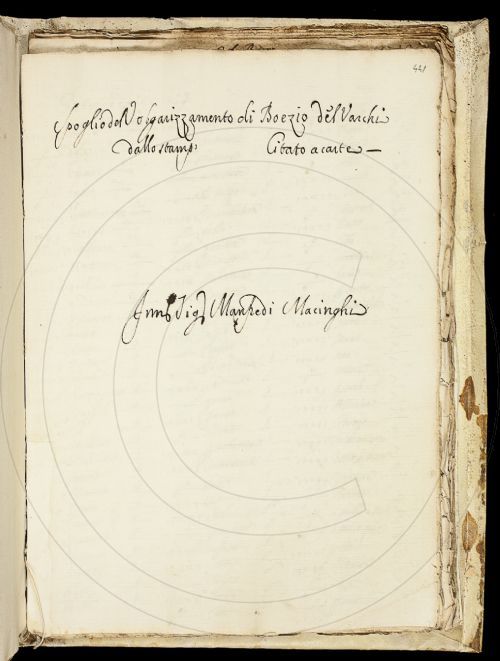 441
Spoglio del Volgarizzamento di Boezio del Varchi
dallo stamp: Citato a carte —
Sig: Manfredi Macinghi